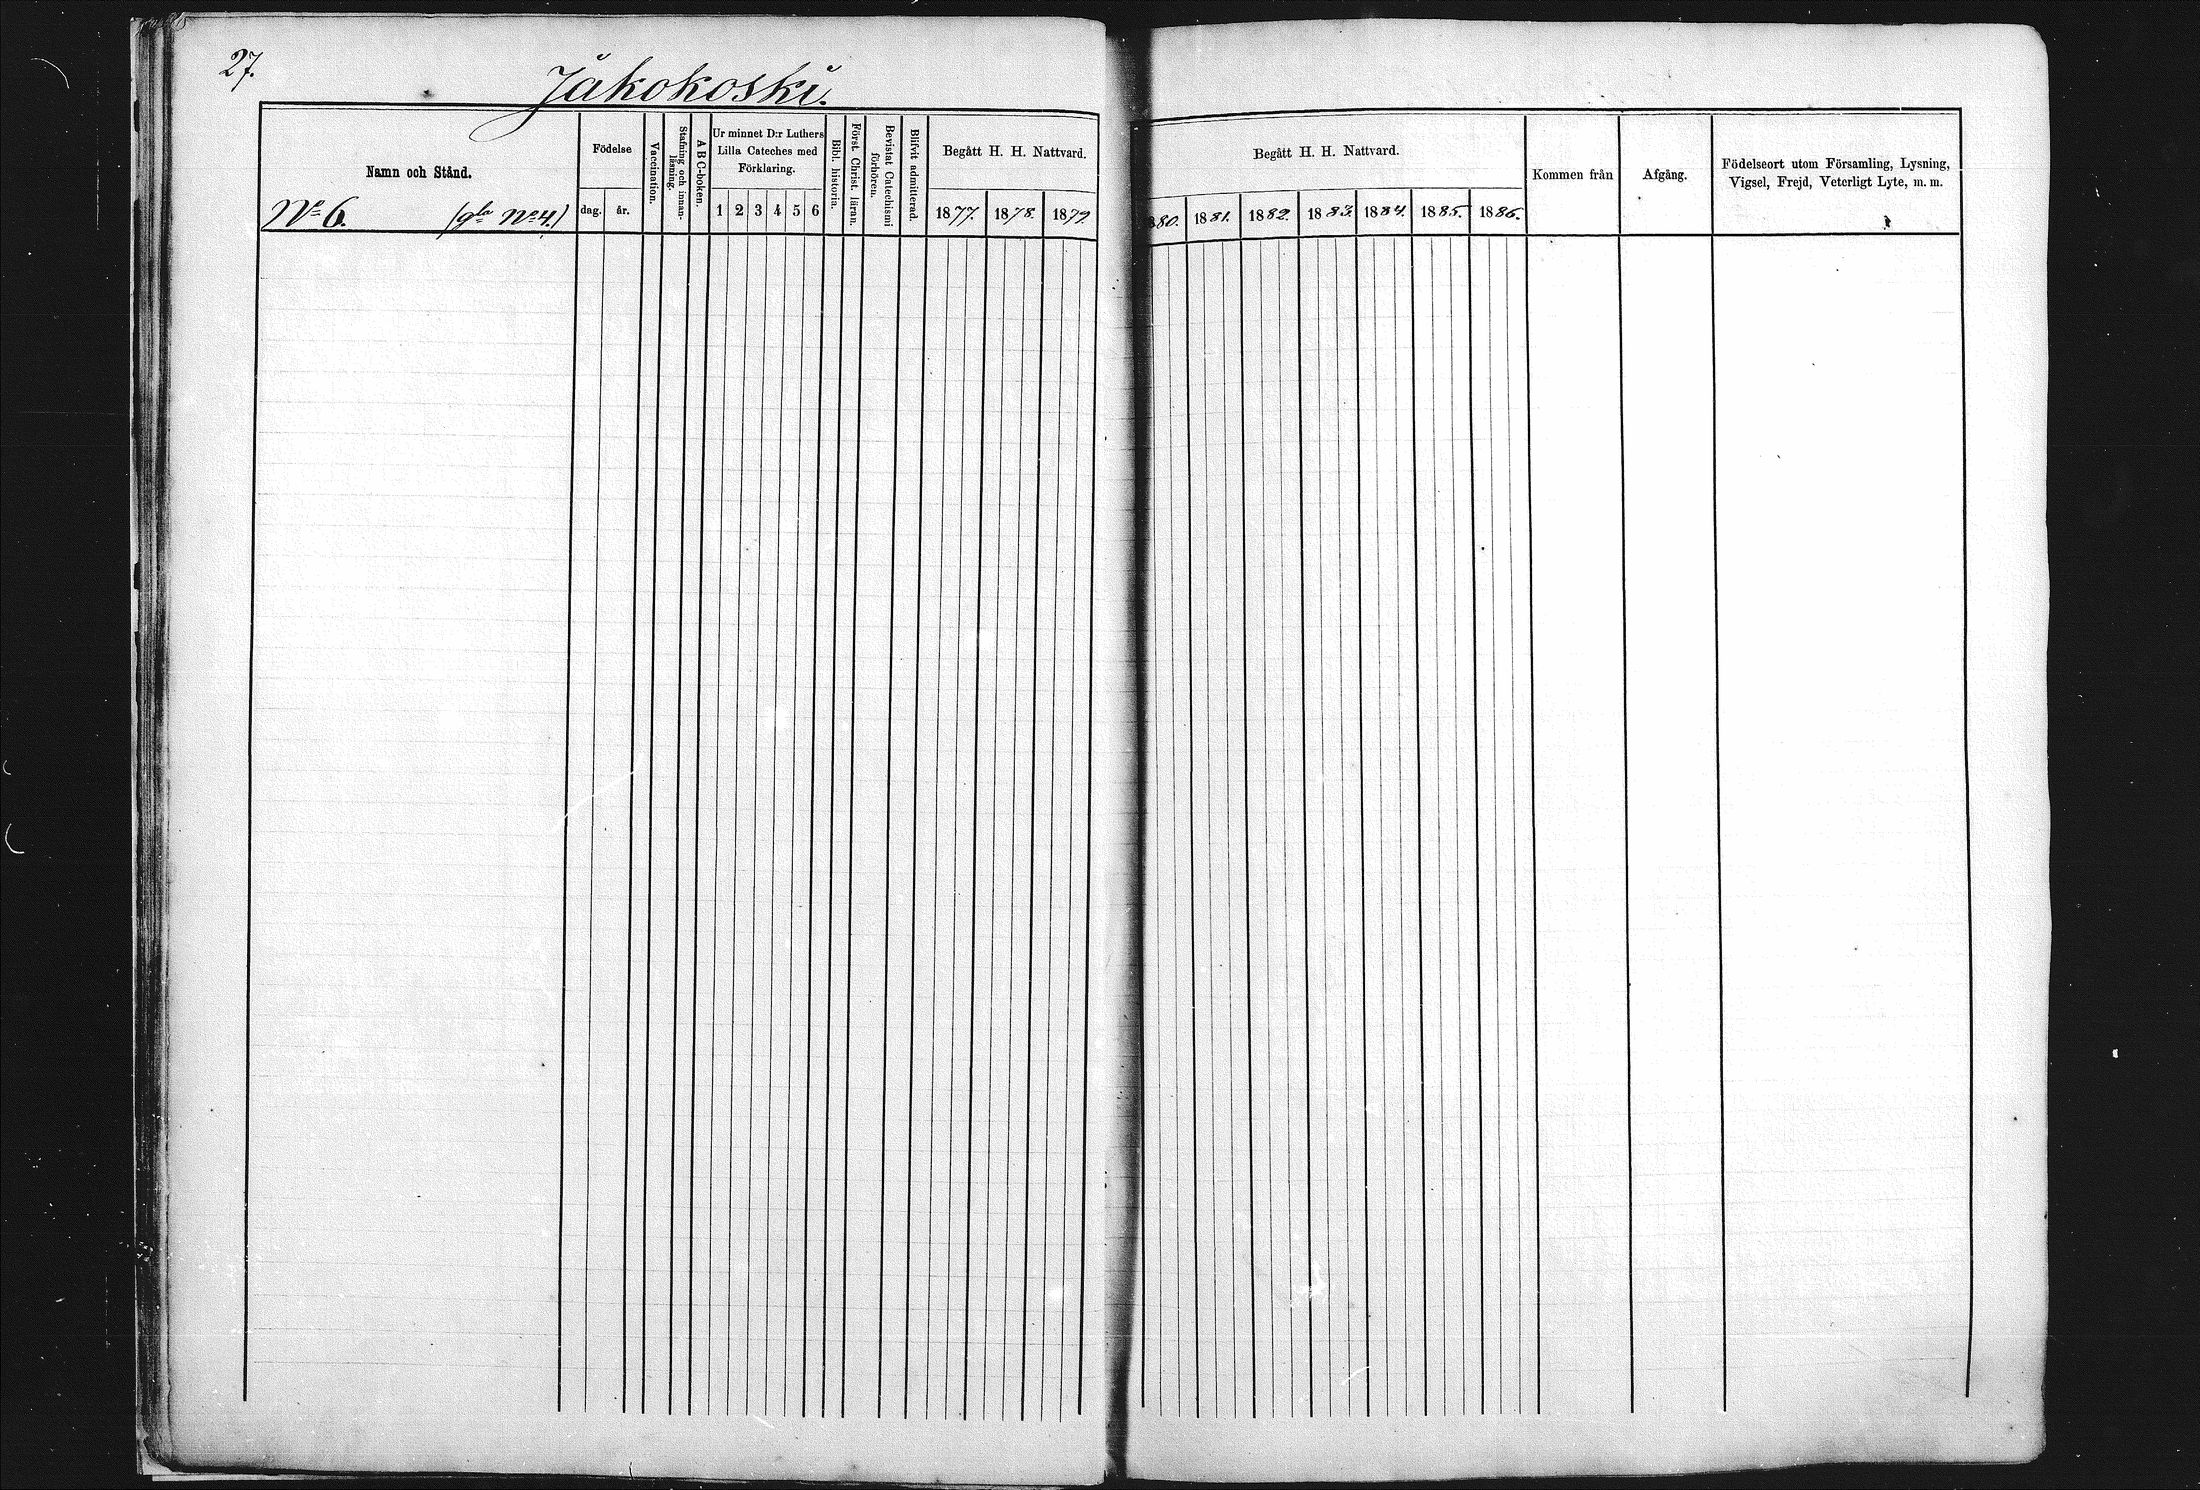 27.
Jakokoski.
Namn och Stånd.
No 6. (gla No 4.)
Födelse
dag. år.
Vaccination.
Stafning och innan-
läsning.
A B C-boken.
Ur minnet D:r Luthers
Lilla Cateches med
Förklaring.
1 2 3 4 5 6
Bibl. historia.
Först. Christ. läran.
Bevistat Catechismi
förhören.
Blifvit admitterad.
Begått H. H. Nattvard.
1877. 1878. 1879.
Begått H. H. Nattvard.
880. 1881. 1882. 1883. 1884. 1885. 1886.
Kommen från
Afgång.
Födelseort utom Församling, Lysning,
Vigsel, Frejd, Veterligt Lyte, m. m.